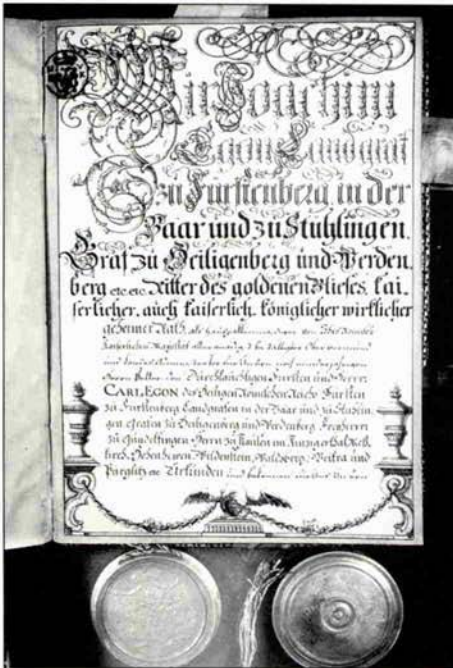 Wir Joachim
Egon Landgraf
zu Fürstenberg, in der
Baar und zu Stühlingen,
Graf zu Heiligenberg und Werden,
berg etc etc Ritter des goldenen Vlieses, kai,
serlicher, auch kaiserlich, königlicher wirklicher
geheimer Rath, als
Kaiserlichen Majestät
und
Herrn Durchlauchtigen Fürsten und Herrn:
CARL EGON des Heiligen Römischen Reichs Fürsten
zu Fürstenberg Landgrafen in der Baar und zu Stühlin,
gen Grafen zu Heiligenberg und Werdenberg, Freyherrn
zu Gundelfingen Herrn zu Hausen im Kinzingerthal Mös,
kirch, Hohenhewen, Wildenstein, Waldsperg, Weitra und
Pürglitz etc Urkunden und bekennen